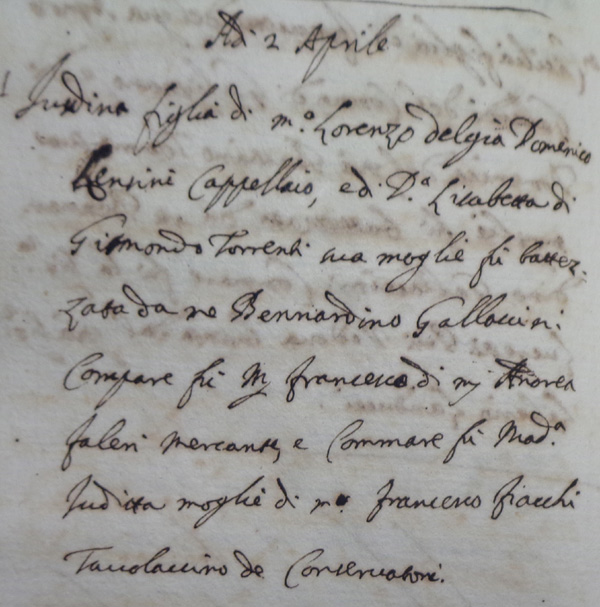 Adi 2 Aprile
Iuddina figlia di m.º Lorenzo del già Domenico
Lensini Cappellaio, e di D.ª Lisabetta di
Gismondo Torrenti sua moglie fù battez-
zata da me Bernardino Gallaccini.
Compare fù Mʃ Francesco di mʃ Andrea
Faleri Mercante, e Commare fù Mad.ª
Iuditta moglie di m.º Francesco Fiacchi
Tavolaccino de Conservatori.